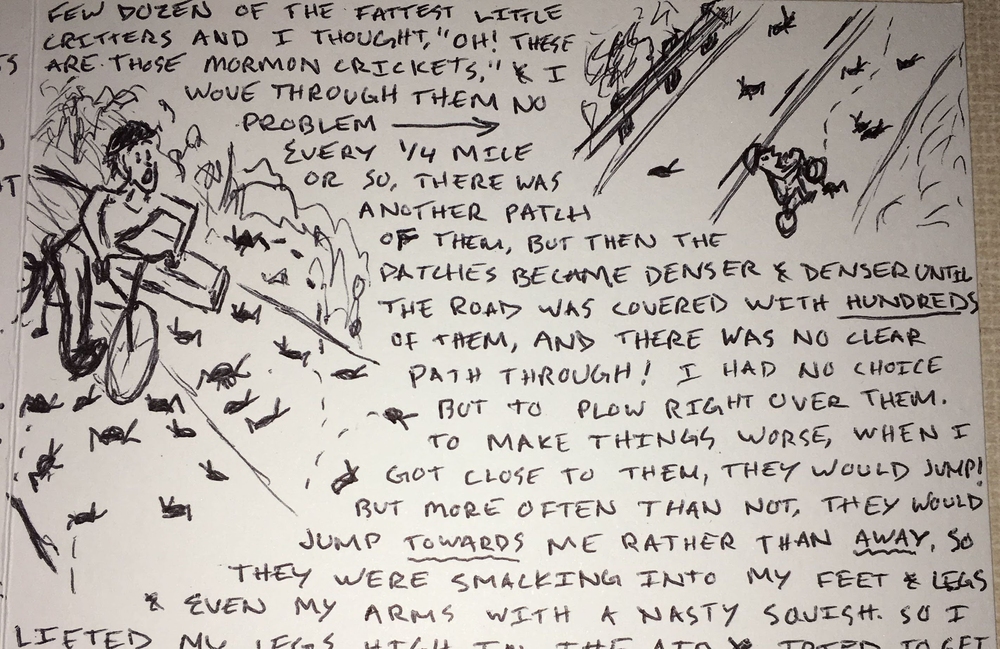 FEW DOZEN OF THE FATTEST LITTLE
CRITTERS AND I THOUGHT, "OH! THESE
ARE THOSE MORMON CRICKETS," & I
WOVE THROUGH THEM NO
PROBLEM →
EVERY 1/4 MILE
OR SO, THERE WAS
ANOTHER PATCH
OF THEM, BUT THEN THE
PATCHES BECAME DENSER & DENSER UNTIL
THE ROAD WAS COVERED WITH HUNDREDS
OF THEM, AND THERE WAS NO CLEAR
PATH THROUGH! I HAD NO CHOICE
BUT TO PLOW RIGHT OVER THEM.
TO MAKE THINGS WORSE, WHEN I
GOT CLOSE TO THEM, THEY WOULD JUMP!
BUT MORE OFTEN THAN NOT, THEY WOULD
JUMP TOWARDS ME RATHER THAN AWAY, SO
THEY WERE SMACKING INTO MY FEET & LEGS
& EVEN MY ARMS WITH A NASTY SQUISH. SO I
LIFTED MY LEGS HIGH IN THE AIR & TRIED TO GET